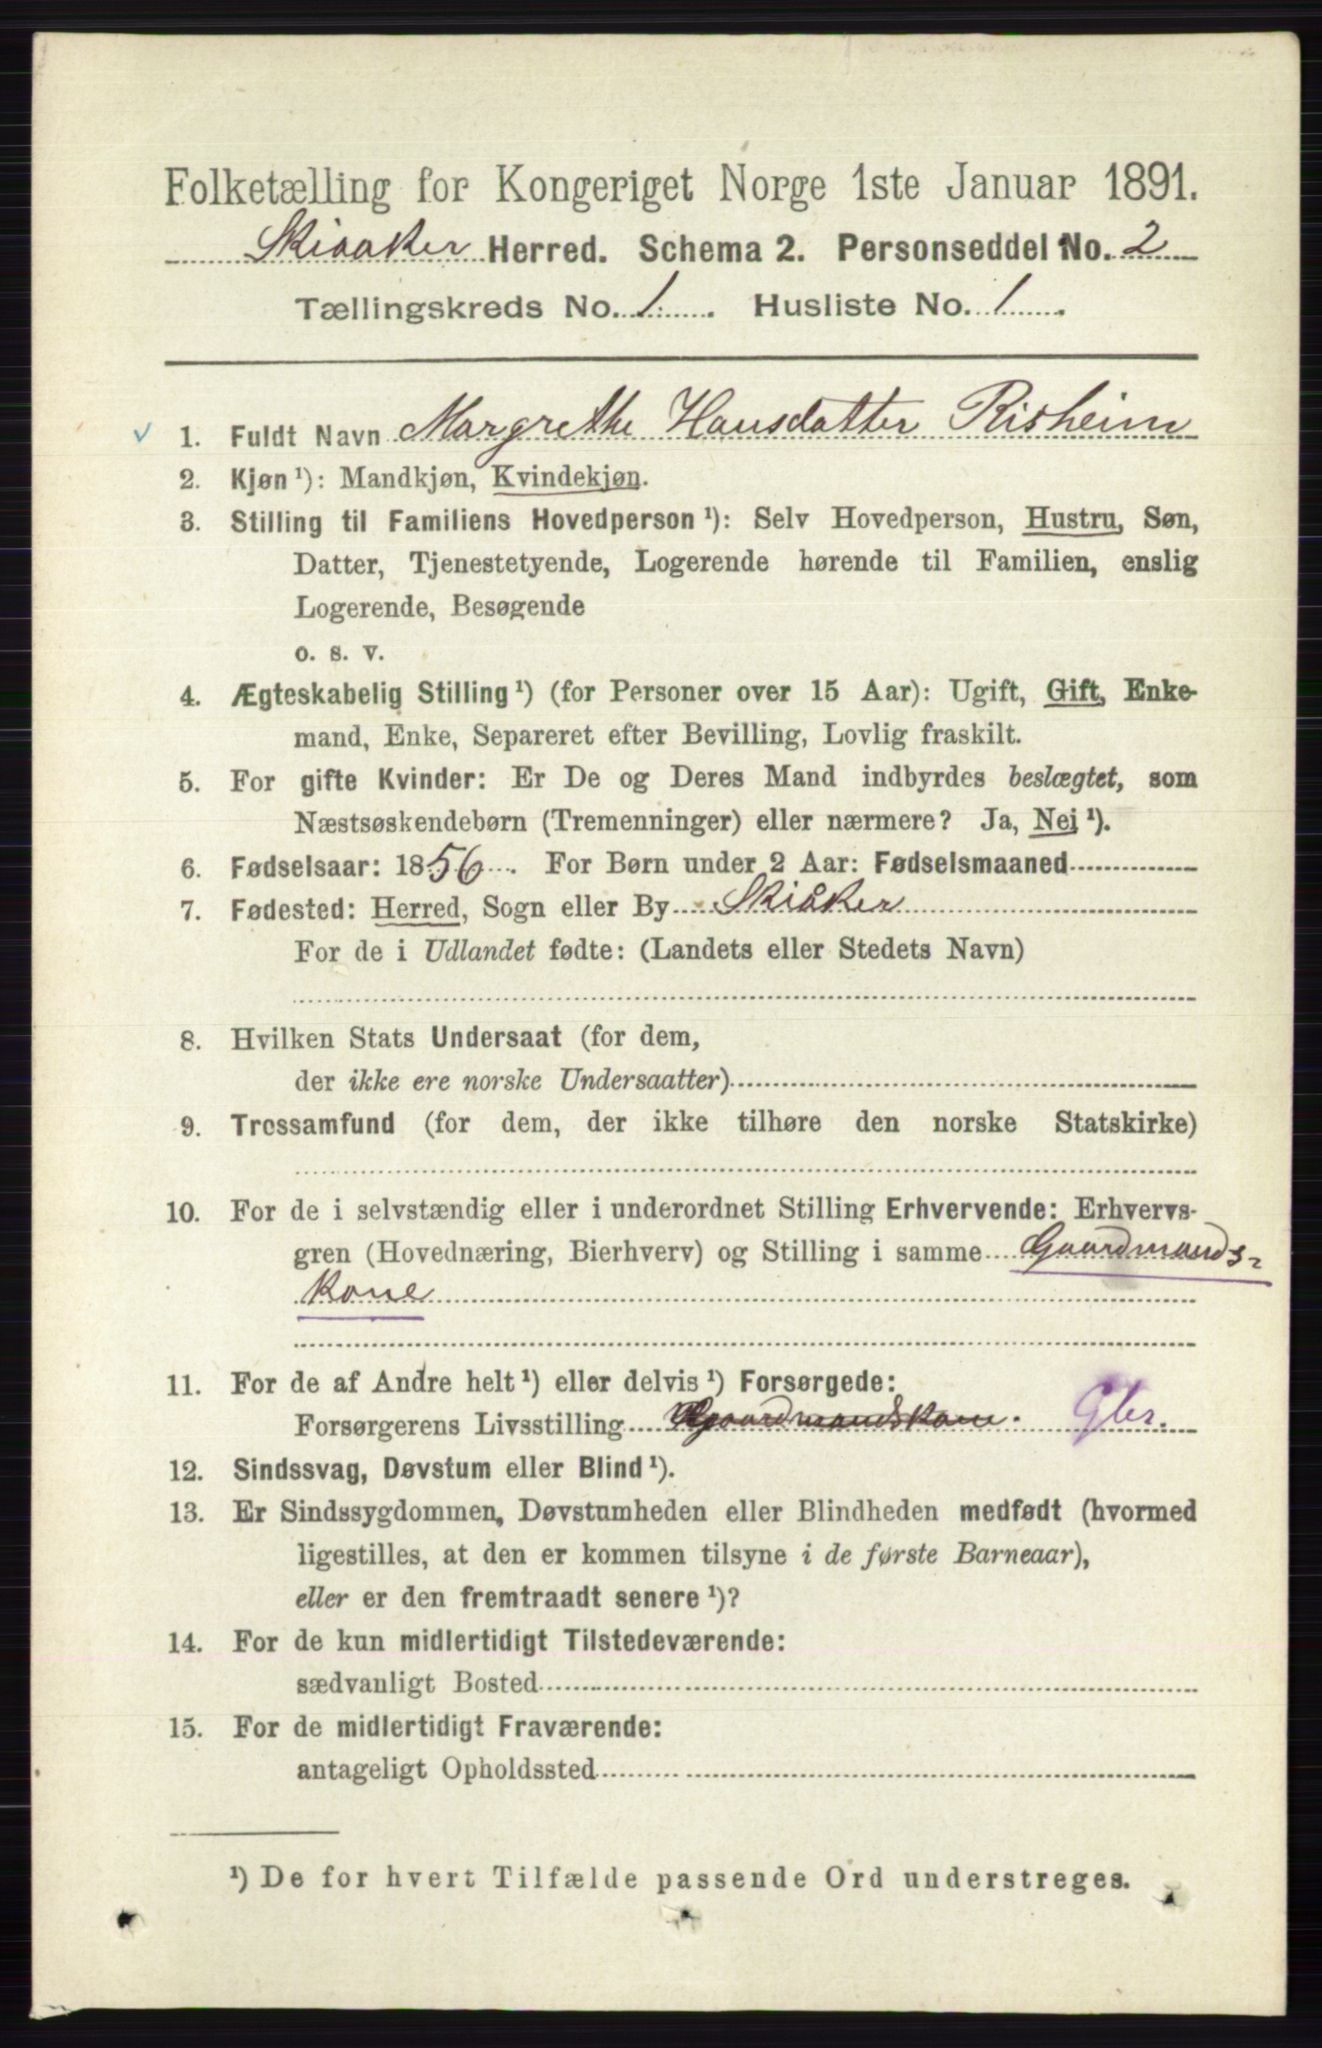 Folketælling for Kongeriget Norge 1ste Januar 1891.
Skiaaker Herred. Schema 2. Personseddel No. 2
Tællingskreds No. 1. Husliste No. 1.
1. Fuldt Navn Margrethe Hansdatter Risheim
2. Kjøn ¹): Mandkjøn, Kvindekjøn.
3. Stilling til Familiens Hovedperson ¹): Selv Hovedperson, Hustru, Søn,
Datter, Tjenestetyende, Logerende hørende til Familien, enslig
Logerende, Besøgende
o. s. v.
4. Ægteskabelig Stilling ¹) (for Personer over 15 Aar): Ugift, Gift, Enke-
mand, Enke, Separeret efter Bevilling, Lovlig fraskilt.
5. For gifte Kvinder: Er De og Deres Mand indbyrdes beslægtet, som
Næstsøskendebørn (Tremenninger) eller nærmere? Ja, Nei ¹).
6. Fødselsaar: 1856. For Børn under 2 Aar: Fødselsmaaned
7. Fødested: Herred, Sogn eller By Skiåker
For de i Udlandet fødte: (Landets eller Stedets Navn)
8. Hvilken Stats Undersaat (for dem,
der ikke ere norske Undersaatter)
9. Trossamfund (for dem, der ikke tilhøre den norske Statskirke)
10. For de i selvstændig eller i underordnet Stilling Erhvervende: Erhvervs-
gren (Hovednæring, Bierhverv) og Stilling i samme Gaardmands-
kone
11. For de af Andre helt ¹) eller delvis ¹) Forsørgede:
Forsørgerens Livsstilling Gaardmandskone. Gbr.
12. Sindssvag, Døvstum eller Blind ¹).
13. Er Sindssygdommen, Døvstumheden eller Blindheden medfødt (hvormed
ligestilles, at den er kommen tilsyne i de første Barneaar),
eller er den fremtraadt senere ¹)?
14. For de kun midlertidigt Tilstedeværende:
sædvanligt Bosted
15. For de midlertidigt Fraværende:
antageligt Opholdssted
¹) De for hvert Tilfælde passende Ord understreges.